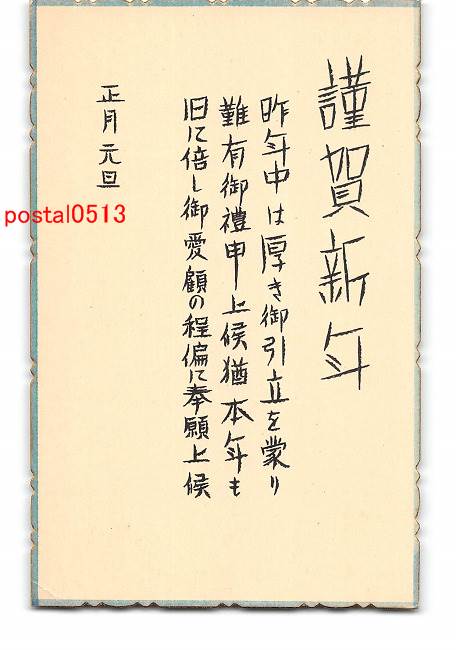 謹賀新年
昨年中は厚き御引立を蒙り
難有御禮申上候猶本年も
旧に倍し御愛顧の程偏に奉願上候
正月元旦
postal0513